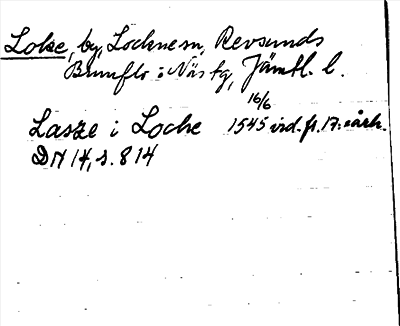 Loke, by, Lockne sn, Revsunds
Brunflo i Näs tg, Jämtl. l.
16/6
Lasze i Locke 1545 vid. fr. 17. årh.
DN 14, s. 814